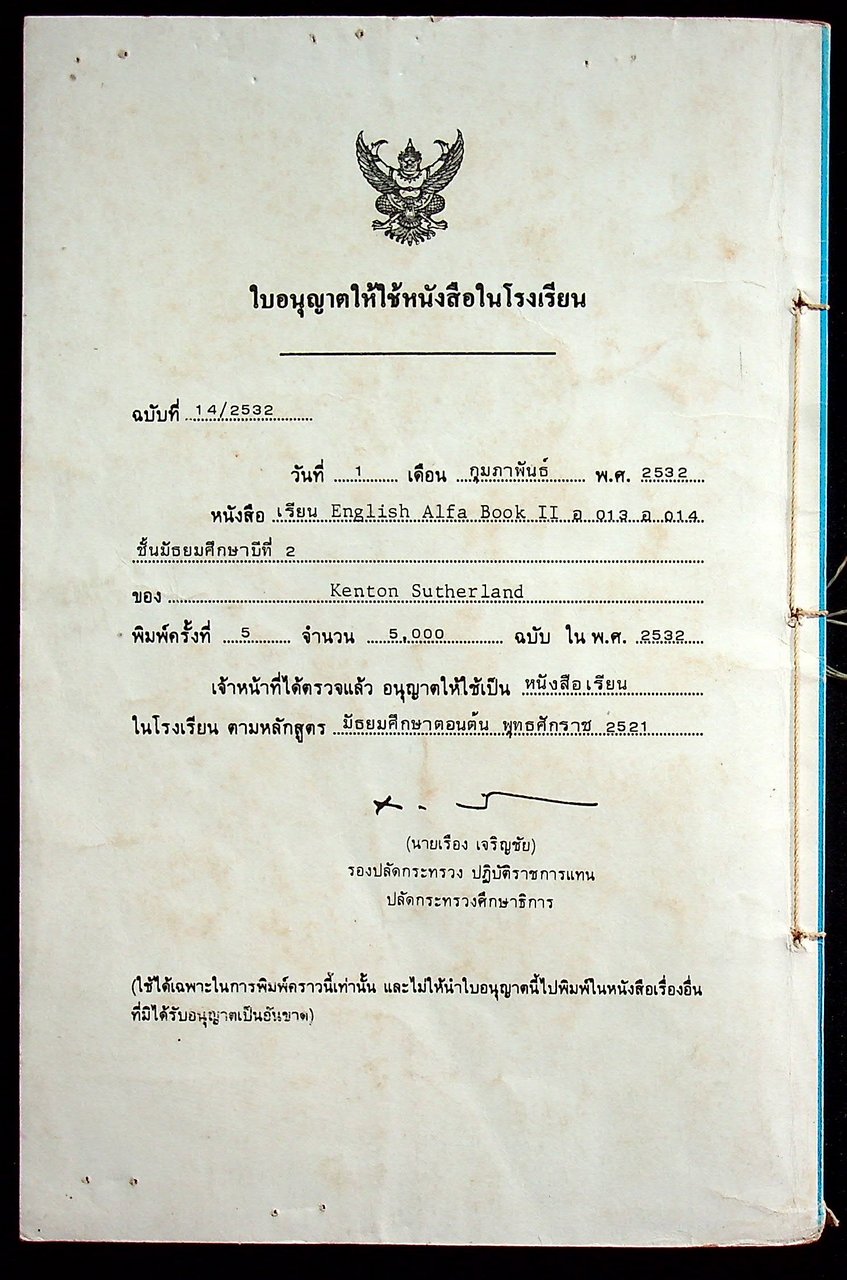 ใบอนุญาตให้ใช้หนังสือในโรงเรียน
ฉบับที่ 14/2532
วันที่ 1 เดือน กุมภาพันธ์ พ.ศ. 2532
หนังสือ เรียน English Alfa Book II อ 013 อ 014
ชั้นมัธยมศึกษาปีที่ 2
ของ Kenton Sutherland
พิมพ์ครั้งที่ 5 จำนวน 5,000 ฉบับ ใน พ.ศ. 2532
เจ้าหน้าที่ได้ตรวจแล้ว อนุญาตให้ใช้เป็น หนังสือเรียน
ในโรงเรียน ตามหลักสูตร มัธยมศึกษาตอนต้น พุทธศักราช 2521
(นายเรือง เจริญชัย)
รองปลัดกระทรวง ปฏิบัติราชการแทน
ปลัดกระทรวงศึกษาธิการ
(ใช้ได้เฉพาะในการพิมพ์คราวนี้เท่านั้น และไม่ให้นำใบอนุญาตนี้ไปพิมพ์ในหนังสือเรื่องอื่น
ที่มิได้รับอนุญาตเป็นอันขาด)